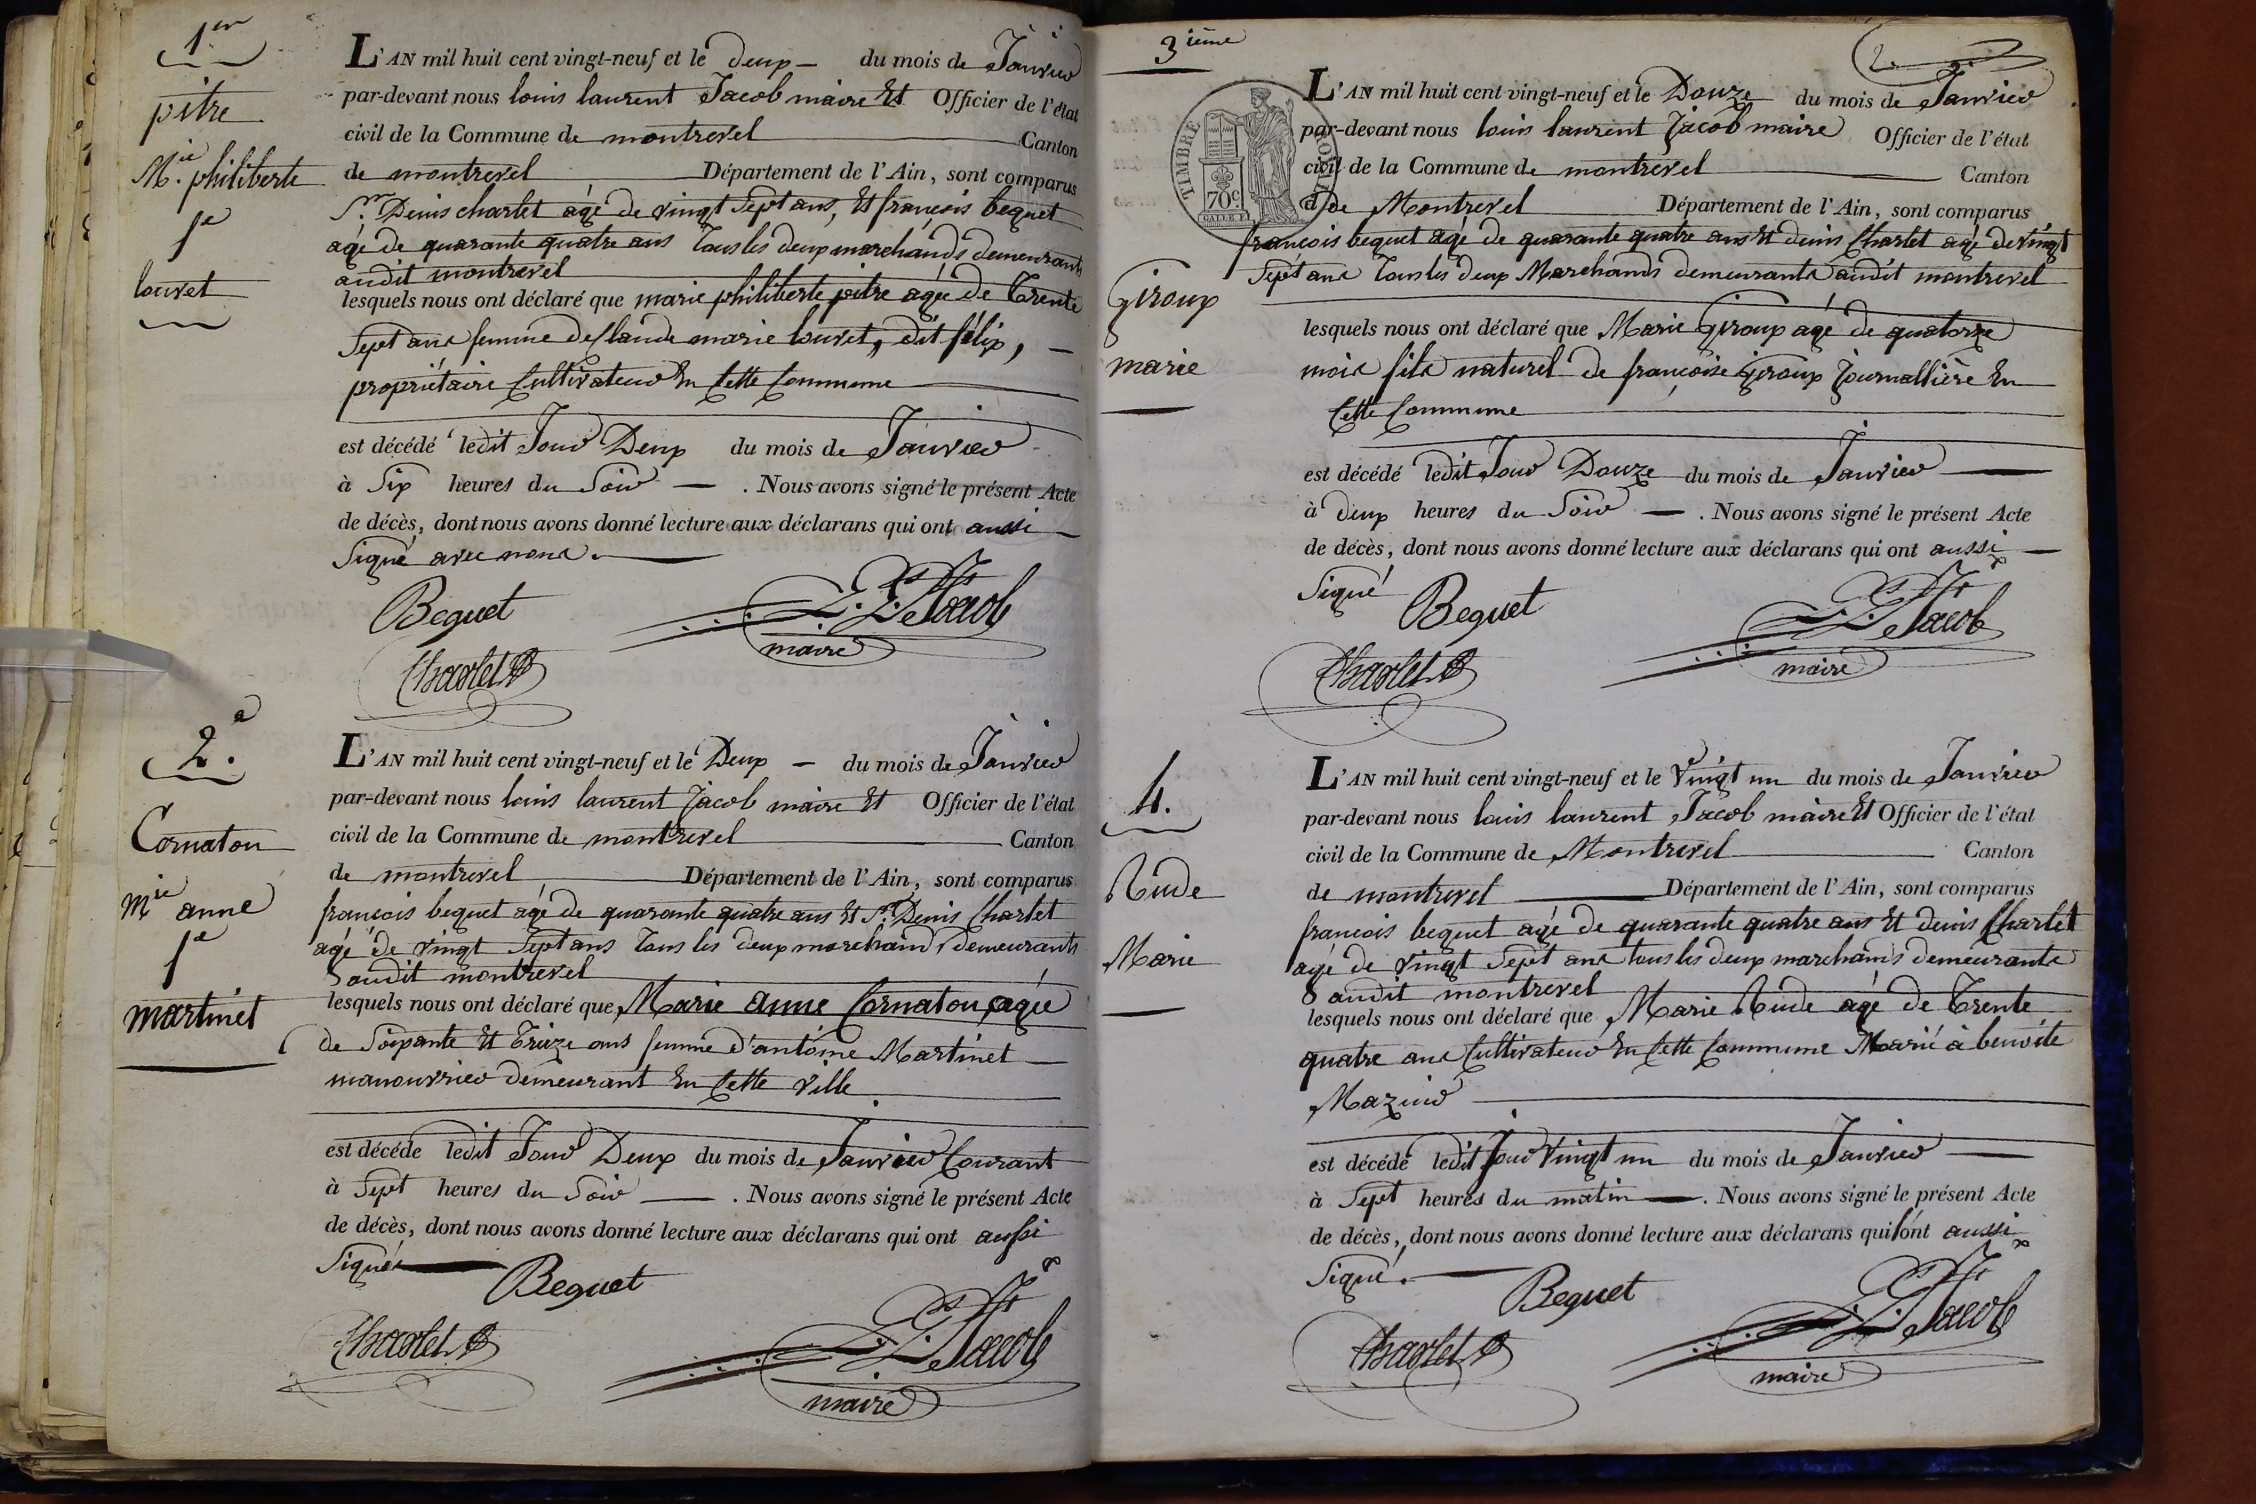 1er
pitre
Mie philiberte
fe
louvet
L'AN mil huit cent vingt-neuf et le deux — du mois de Janvier
par-devant nous louis laurent Jacob maire Et Officier de l'état
civil de la Commune de montrevel Canton
de montrevel Département de l'Ain, sont comparus
Sr Denis charlet agé de vingt Sept ans, Et françois bequet
agé de quarante quatre ans tous les deux marchands demeurants
audit montrevel
lesquels nous ont déclaré que marie philiberte pitre agée de Trente
Sept ans femme de Claude marie louvet, dit félix, —
propriétaire Cultivateur En Cette Commune
est décédé ledit Jour Deux du mois de Janvier
à Six heures du Soir — . Nous avons signé le présent Acte
de décès, dont nous avons donné lecture aux déclarans qui ont aussi
Signé avec nous.
Beguet
L. Lt Jacob
maire
Charlet
2e.
Cornaton
Mie anne
fe
martinet
L'AN mil huit cent vingt-neuf et le Deux — du mois de Janvier
par-devant nous louis laurent Jacob maire Et Officier de l'état
civil de la Commune de montrevel Canton
de montrevel Département de l'Ain, sont comparus
françois bequet agé de quarante quatre ans Et Sr Denis Charlet
agé de vingt Sept ans tous les deux marchands demeurants
audit montrevel
lesquels nous ont déclaré que Marie anne Cornaton agée
de Soixante Et Treize ans femme d'antoine Martinet
manouvrier demeurant En Cette ville.
est décédé ledit Jour Deux du mois de Janvier Courant
à Sept heures du Soir — . Nous avons signé le présent Acte
de décès, dont nous avons donné lecture aux déclarans qui ont aussi
Signés
Beguet
Charlet
L. Lt Jacob
maire
3ième
2
TIMBRE ROYAL
70c
L'AN mil huit cent vingt-neuf et le Douze du mois de Janvier
par-devant nous louis laurent Jacob maire Officier de l'état
civil de la Commune de montrevel Canton
de Montrevel Département de l'Ain, sont comparus
françois bequet agé de quarante quatre ans Et denis Charlet agé de vingt
Sept ans tous les deux Marchands demeurants audit montrevel
Giroux
marie
lesquels nous ont déclaré que Marie Giroux agé de quatorze
mois fils naturel de françoise Giroux Journallière En
Cette Commune
est décédé ledit Jour Douze du mois de Janvier
à deux heures du Soir — . Nous avons signé le présent Acte
de décès, dont nous avons donné lecture aux déclarans qui ont aussi
Signé
Beguet
L. Lt Jacob
maire
Charlet
4.
Rude
Marie
L'AN mil huit cent vingt-neuf et le vingt un du mois de Janvier
par-devant nous louis laurent Jacob maire Et Officier de l'état
civil de la Commune de Montrevel Canton
de montrevel Département de l'Ain, sont comparus
françois bequet agé de quarante quatre ans Et denis Charlet
agé de vingt Sept ans tous les deux marchands demeurants
audit montrevel
lesquels nous ont déclaré que Marie Rude agé de Trente
quatre ans Cultivateur En Cette Commune Marié à benoite
Mazuir
est décédé ledit Jour vingt un du mois de Janvier
à Sept heures du matin — . Nous avons signé le présent Acte
de décès, dont nous avons donné lecture aux déclarans qui ont aussi
Signé.
Beguet
Charlet
L. Lt Jacob
maire